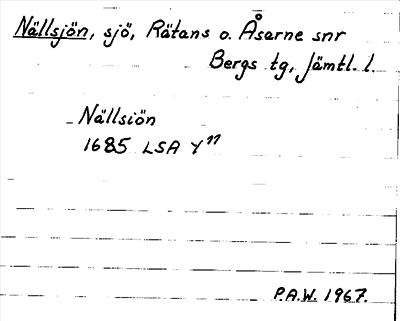 Nällsjön, sjö, Rätans o. Åsarne snr
Bergs tg, Jämtl. l.
Nällsiön
1685 LSA Y¹¹
P.A.W. 1967.